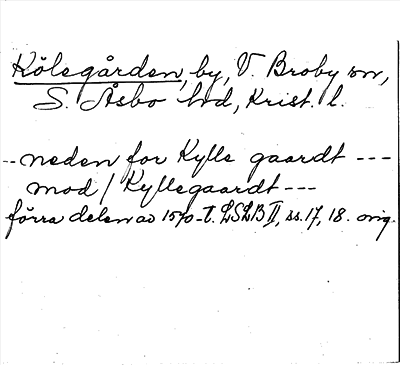 Kölegården, by, V. Broby sn,
S. Åsbo hd, Krist. l.
-- neden for Kylle gaardt ---
mod / Kyllegaardt ---
förra delen av 1570-t. LSLB II, ss. 17, 18. orig.